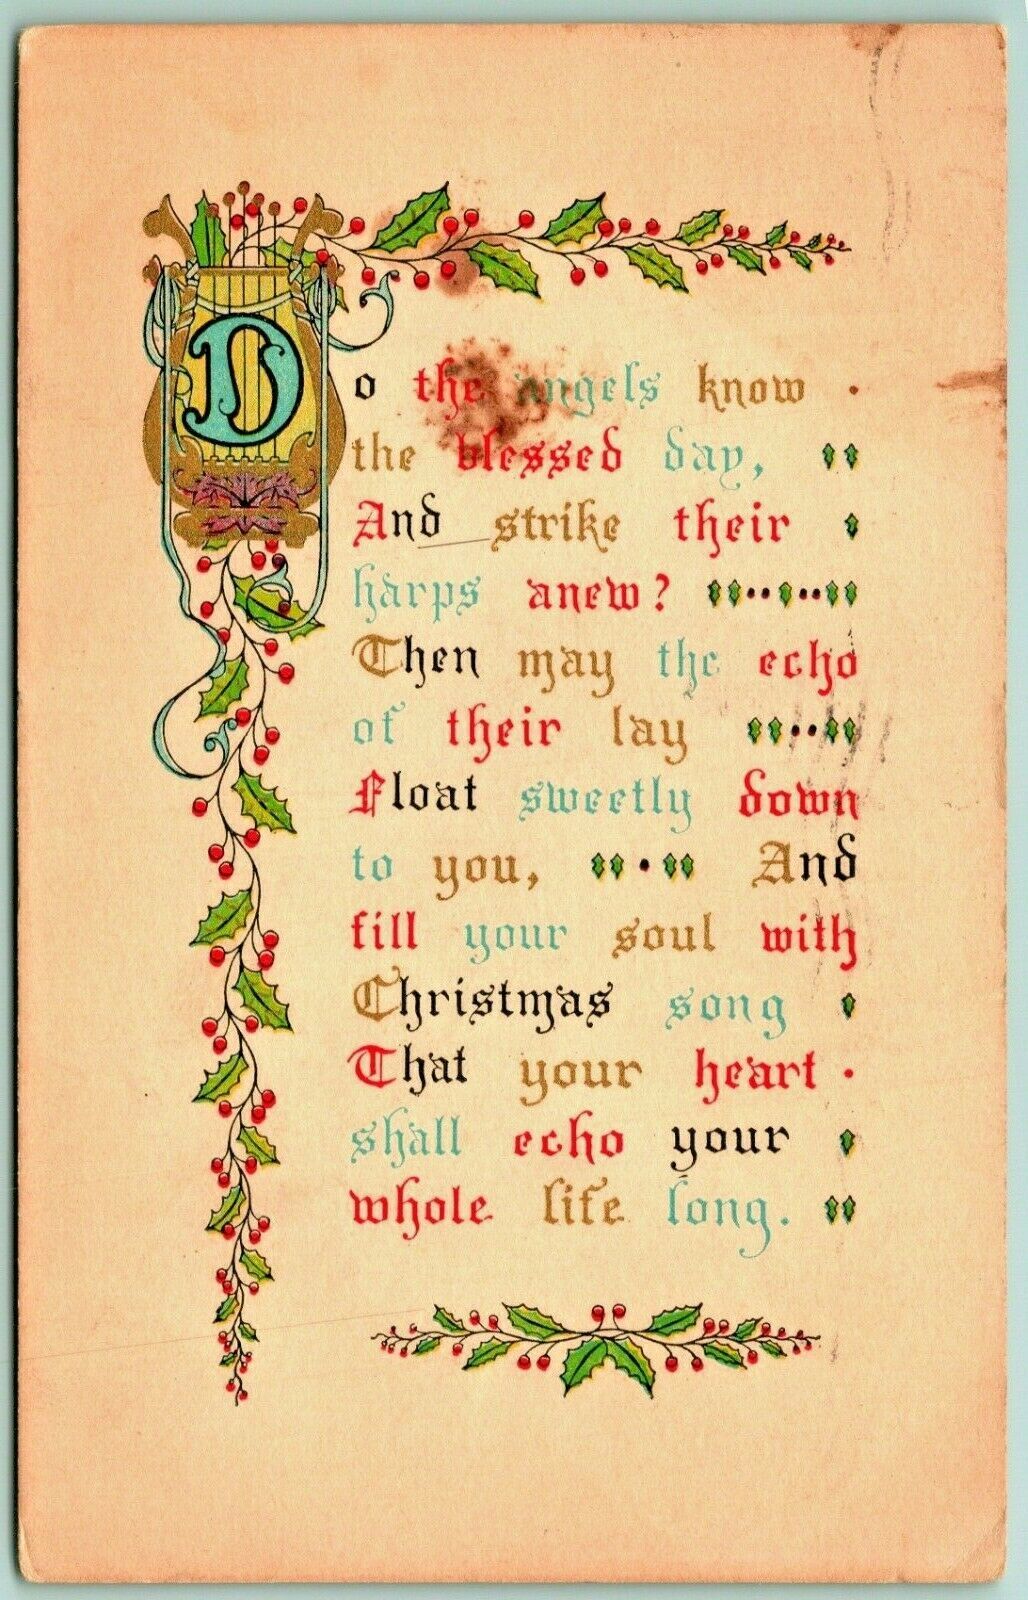 Do the angels know
the blessed day,
And strike their
harps anew?
Then may the echo
of their lay
Float sweetly down
to you, And
fill your soul with
Christmas song
That your heart
shall echo your
whole life long.